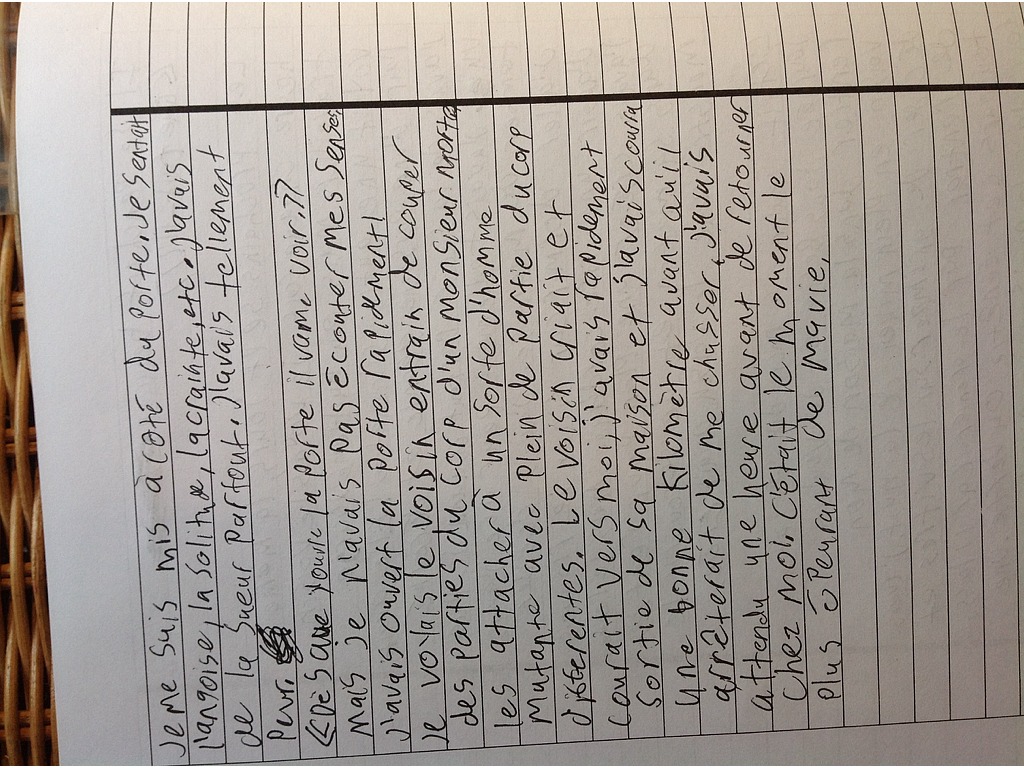 Je me suis mis à côté du porte. Je sentait
l'angoise, la solitue, la crainte, etc. J'avais
de la sueur partout. J'avais tellement
peur.
<<Dès que j'ouvre la porte il va me voir.>>
Mais je n'avais pas écouter mes senses
J'avais ouvert la porte rapidement
Je voyais le voisin entrain de couper
des parties du corp d'un monsieur mort a
les attacher à un sorte d'homme
mutante avec plein de partie du corp
diferentes. Le voisin criait et
courait vers moi, j'avais rapidement
sortie de sa maison et j'avais coura
une bonne kilomètre avant qu'il
arrêterait de me chasser, j'avais
attendu une heure avant de retourner
chez moi. C'était le moment le
plus àpeurant de ma vie.